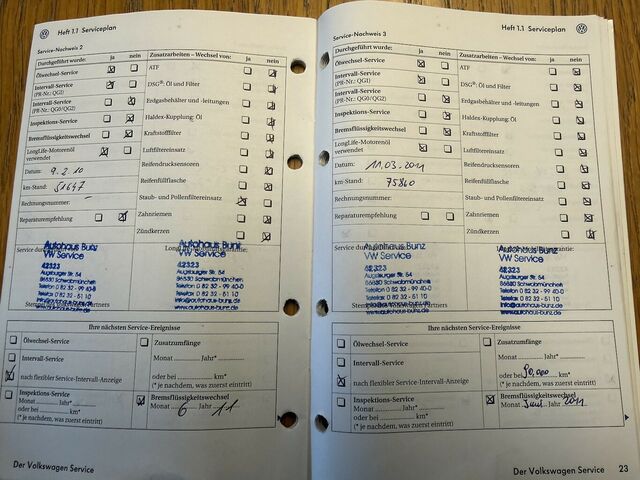 Heft 1.1 Serviceplan
Service-Nachweis 2
Durchgeführt wurde: ja nein
Ölwechsel-Service
Intervall-Service
(PR-Nr.: QG1)
Intervall-Service
(PR-Nr.: QG0/QG2)
Inspektions-Service
Bremsflüssigkeitswechsel
LongLife-Motorenöl
verwendet
Datum: 9.2.10
km-Stand: 51647
Rechnungsnummer:
Reparaturempfehlung
Zusatzarbeiten – Wechsel von: ja nein
ATF
DSG®: Öl und Filter
Erdgasbehälter und -leitungen
Haldex-Kupplung: Öl
Kraftstofffilter
Luftfiltereinsatz
Reifendrucksensoren
Reifenfüllflasche
Staub- und Pollenfiltereinsatz
Zahnriemen
Zündkerzen
Autohaus Bunz
VW Service
42323
Augsburger Str. 54
86830 Schwabmünchen
Telefon 0 82 32 - 99 40-0
Telefax 0 82 32 - 51 10
info@autohaus-bunz.de
www.autohaus-bunz.de
Autohaus Bunz
VW Service
42323
Augsburger Str. 54
86830 Schwabmünchen
Telefon 0 82 32 - 99 40-0
Telefax 0 82 32 - 51 10
info@autohaus-bunz.de
www.autohaus-bunz.de
Ihre nächsten Service-Ereignisse
Ölwechsel-Service
Intervall-Service
nach flexibler Service-Intervall-Anzeige
Inspektions-Service
Monat ........ Jahr* ........
oder bei ........ km*
(* je nachdem, was zuerst eintritt)
Zusatzumfänge
Monat ........ Jahr* ........
oder bei ........ km*
(* je nachdem, was zuerst eintritt)
Bremsflüssigkeitswechsel
Monat 6 Jahr 11
Der Volkswagen Service
Heft 1.1 Serviceplan
Service-Nachweis 3
Durchgeführt wurde: ja nein
Ölwechsel-Service
Intervall-Service
(PR-Nr.: QG1)
Intervall-Service
(PR-Nr.: QG0/QG2)
Inspektions-Service
Bremsflüssigkeitswechsel
LongLife-Motorenöl
verwendet
Datum: 11.03.2011
km-Stand: 75860
Rechnungsnummer:
Reparaturempfehlung
Zusatzarbeiten – Wechsel von: ja nein
ATF
DSG®: Öl und Filter
Erdgasbehälter und -leitungen
Haldex-Kupplung: Öl
Kraftstofffilter
Luftfiltereinsatz
Reifendrucksensoren
Reifenfüllflasche
Staub- und Pollenfiltereinsatz
Zahnriemen
Zündkerzen
Autohaus Bunz
VW Service
42323
Augsburger Str. 54
86830 Schwabmünchen
Telefon 0 82 32 - 99 40-0
Telefax 0 82 32 - 51 10
info@autohaus-bunz.de
www.autohaus-bunz.de
Autohaus Bunz
VW Service
42323
Augsburger Str. 54
86830 Schwabmünchen
Telefon 0 82 32 - 99 40-0
Telefax 0 82 32 - 51 10
info@autohaus-bunz.de
www.autohaus-bunz.de
Ihre nächsten Service-Ereignisse
Ölwechsel-Service
Intervall-Service
nach flexibler Service-Intervall-Anzeige
Inspektions-Service
Monat ........ Jahr* ........
oder bei ........ km*
(* je nachdem, was zuerst eintritt)
Zusatzumfänge
Monat ........ Jahr* ........
oder bei 90.000 km*
(* je nachdem, was zuerst eintritt)
Bremsflüssigkeitswechsel
Monat Juni Jahr 2011
Der Volkswagen Service 23